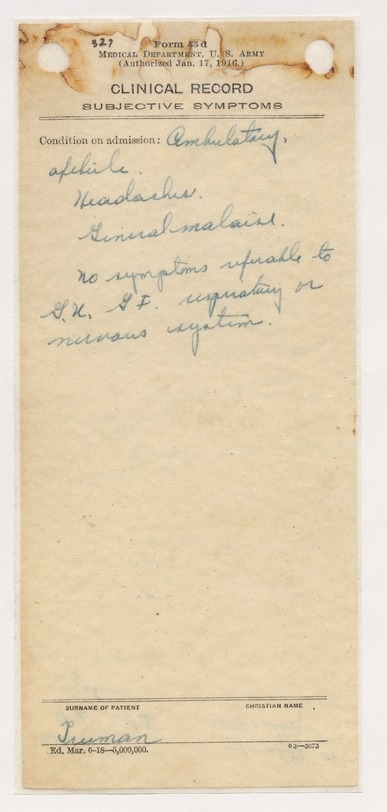 527
Form 55d
MEDICAL DEPARTMENT, U. S. ARMY
(Authorized Jan. 17, 1916.)
CLINICAL RECORD
SUBJECTIVE SYMPTOMS
Condition on admission: Ambulatory,
afebrile.
Headaches.
General malaise.
no symptoms referable to
G.U. G I. respiratory or
nervous system.
SURNAME OF PATIENT CHRISTIAN NAME
Truman
Ed. Mar. 6-18—5,000,000. 3—3673